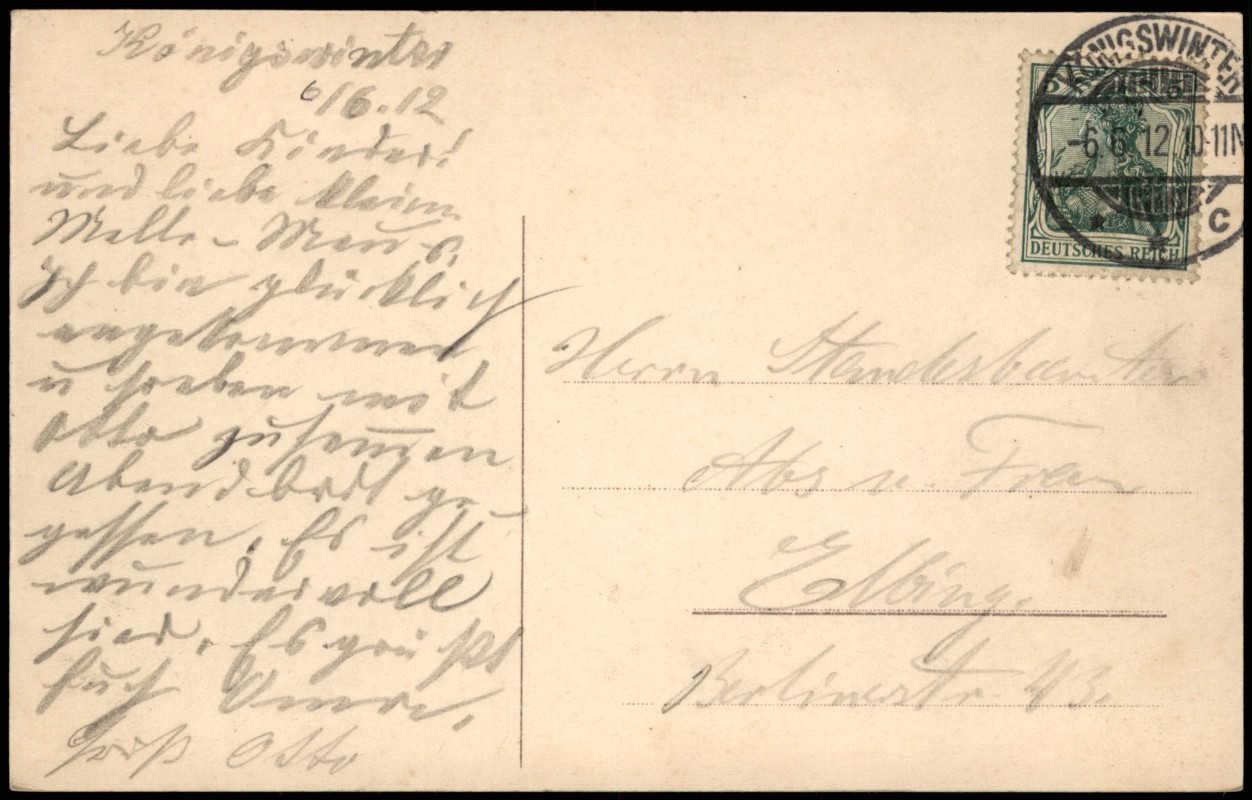 Königswinter
6/6.12
Liebe Kinder!
und liebe kleine
Melle-Maus,
Ich bin glücklich
angekommen
u soeben mit
Otto zusammen
Abendbrot ge-
gessen, Es ist
wundervoll
hier. Es grüßt
Euch
Otto
KÖNIGSWINTER
-6.6.12.10-11N
C
DEUTSCHES REICH
Herrn Standesbeamten
Abs u. Frau
Elbing.
Berlinerstr. 43.